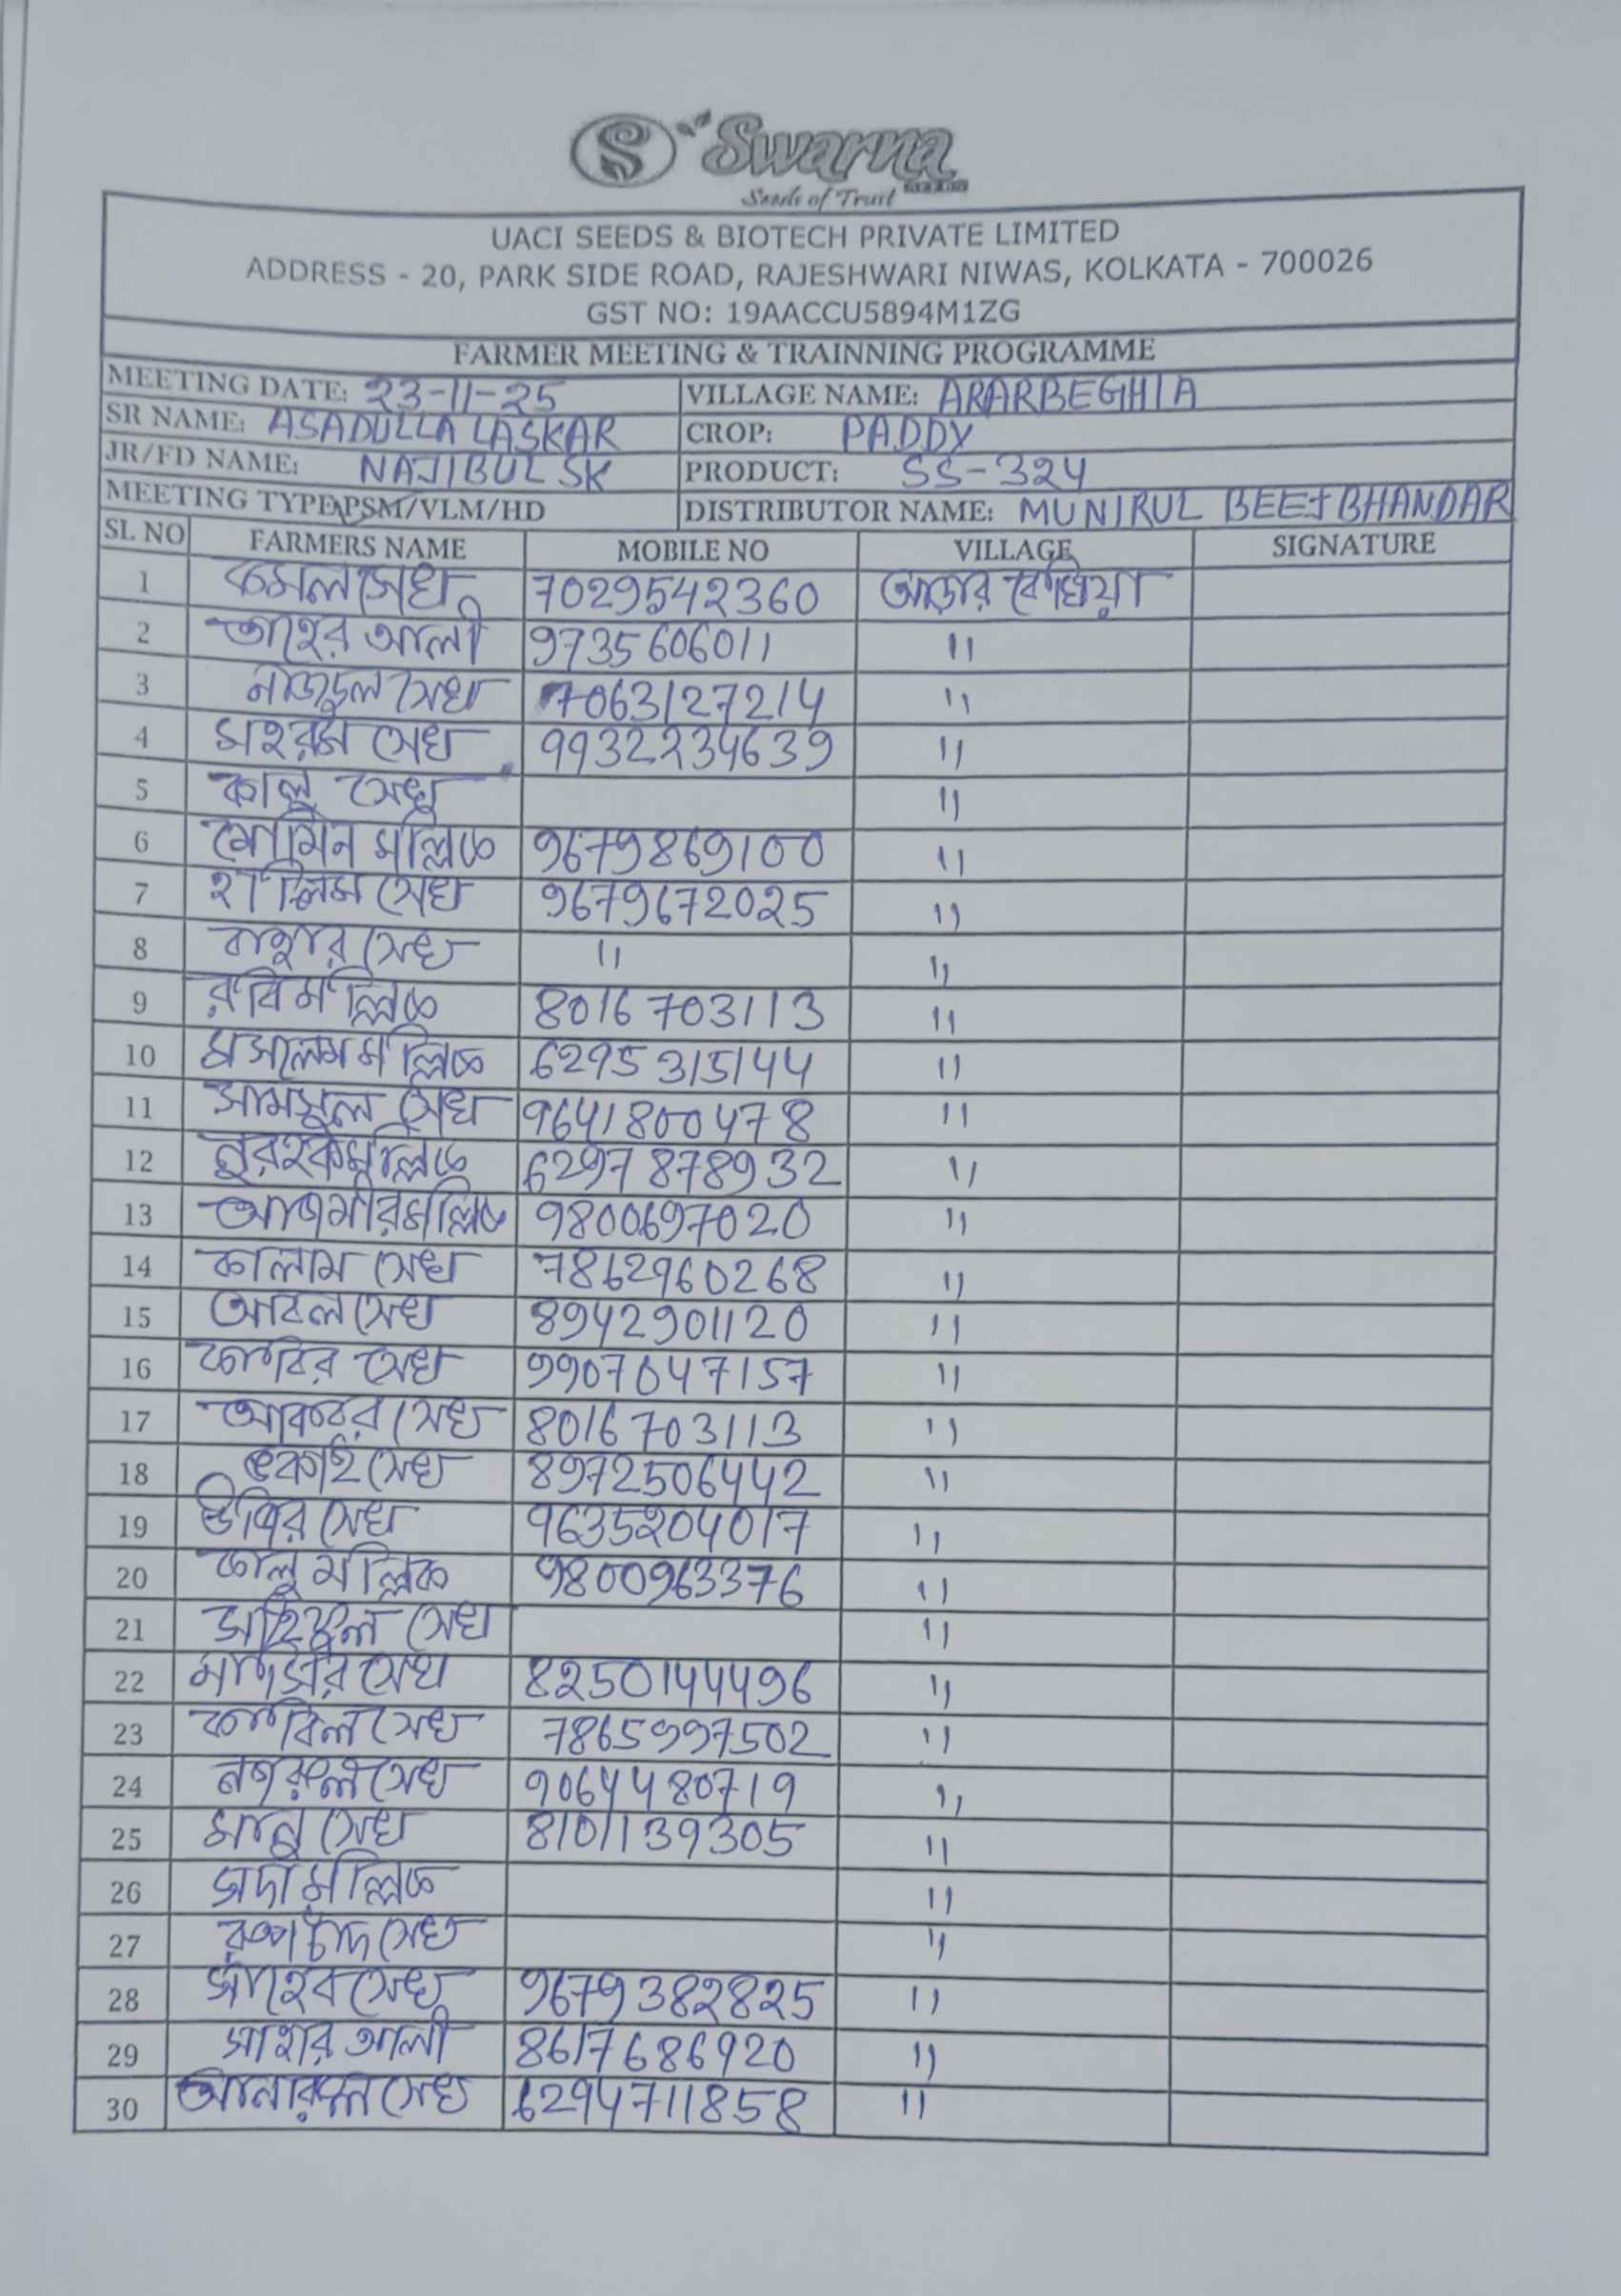 Swarna
Seeds of Trust
UACI SEEDS & BIOTECH PRIVATE LIMITED
ADDRESS - 20, PARK SIDE ROAD, RAJESHWARI NIWAS, KOLKATA - 700026
GST NO: 19AACCU5894M1ZG
FARMER MEETING & TRAINNING PROGRAMME
MEETING DATE: 23-11-25 VILLAGE NAME: ARARBEGHIA
SR NAME: ASADULLA LASKAR CROP: PADDY
JR/FD NAME: NAJIBUL SK PRODUCT: SS-324
MEETING TYPE PSM/VLM/HD DISTRIBUTOR NAME: MUNIRUL BEEJ BHANDAR
SL NO FARMERS NAME MOBILE NO VILLAGE SIGNATURE
1 কমল সেখ 7029542360 আড়ার বেঘিয়া
2 তাহের আলী 9735606011 "
3 সেখ 7063127214 "
4 মহরম সেখ 9932234639 "
5 কালু সেখ "
6 মোমিন মল্লিক 9679869100 "
7 হালিম সেখ 9679672025 "
8 সেখ " "
9 রবি মল্লিক 8016703113 "
10 মসলেম মল্লিক 6295315144 "
11 সামসুল সেখ 9641800478 "
12 নুরহক মল্লিক 6297878932 "
13 আজমীর মল্লিক 9800697020 "
14 কালাম সেখ 7862960268 "
15 সেখ 8942901120 "
16 কাবির সেখ 9907047157 "
17 আকবর সেখ 8016703113 "
18 সেখ 8972506442 "
19 সেখ 9635204017 "
20 কালু মল্লিক 9800963376 "
21 সেখ "
22 সেখ 8250144496 "
23 কাবিল সেখ 7865997502 "
24 নজরুল সেখ 9064480719 "
25 সেখ 8101139305 "
26 সদা মল্লিক "
27 রূপচাঁদ সেখ "
28 সাহেব সেখ 9679382825 "
29 আলী 8617686920 "
30 আনারুল সেখ 6294711858 "